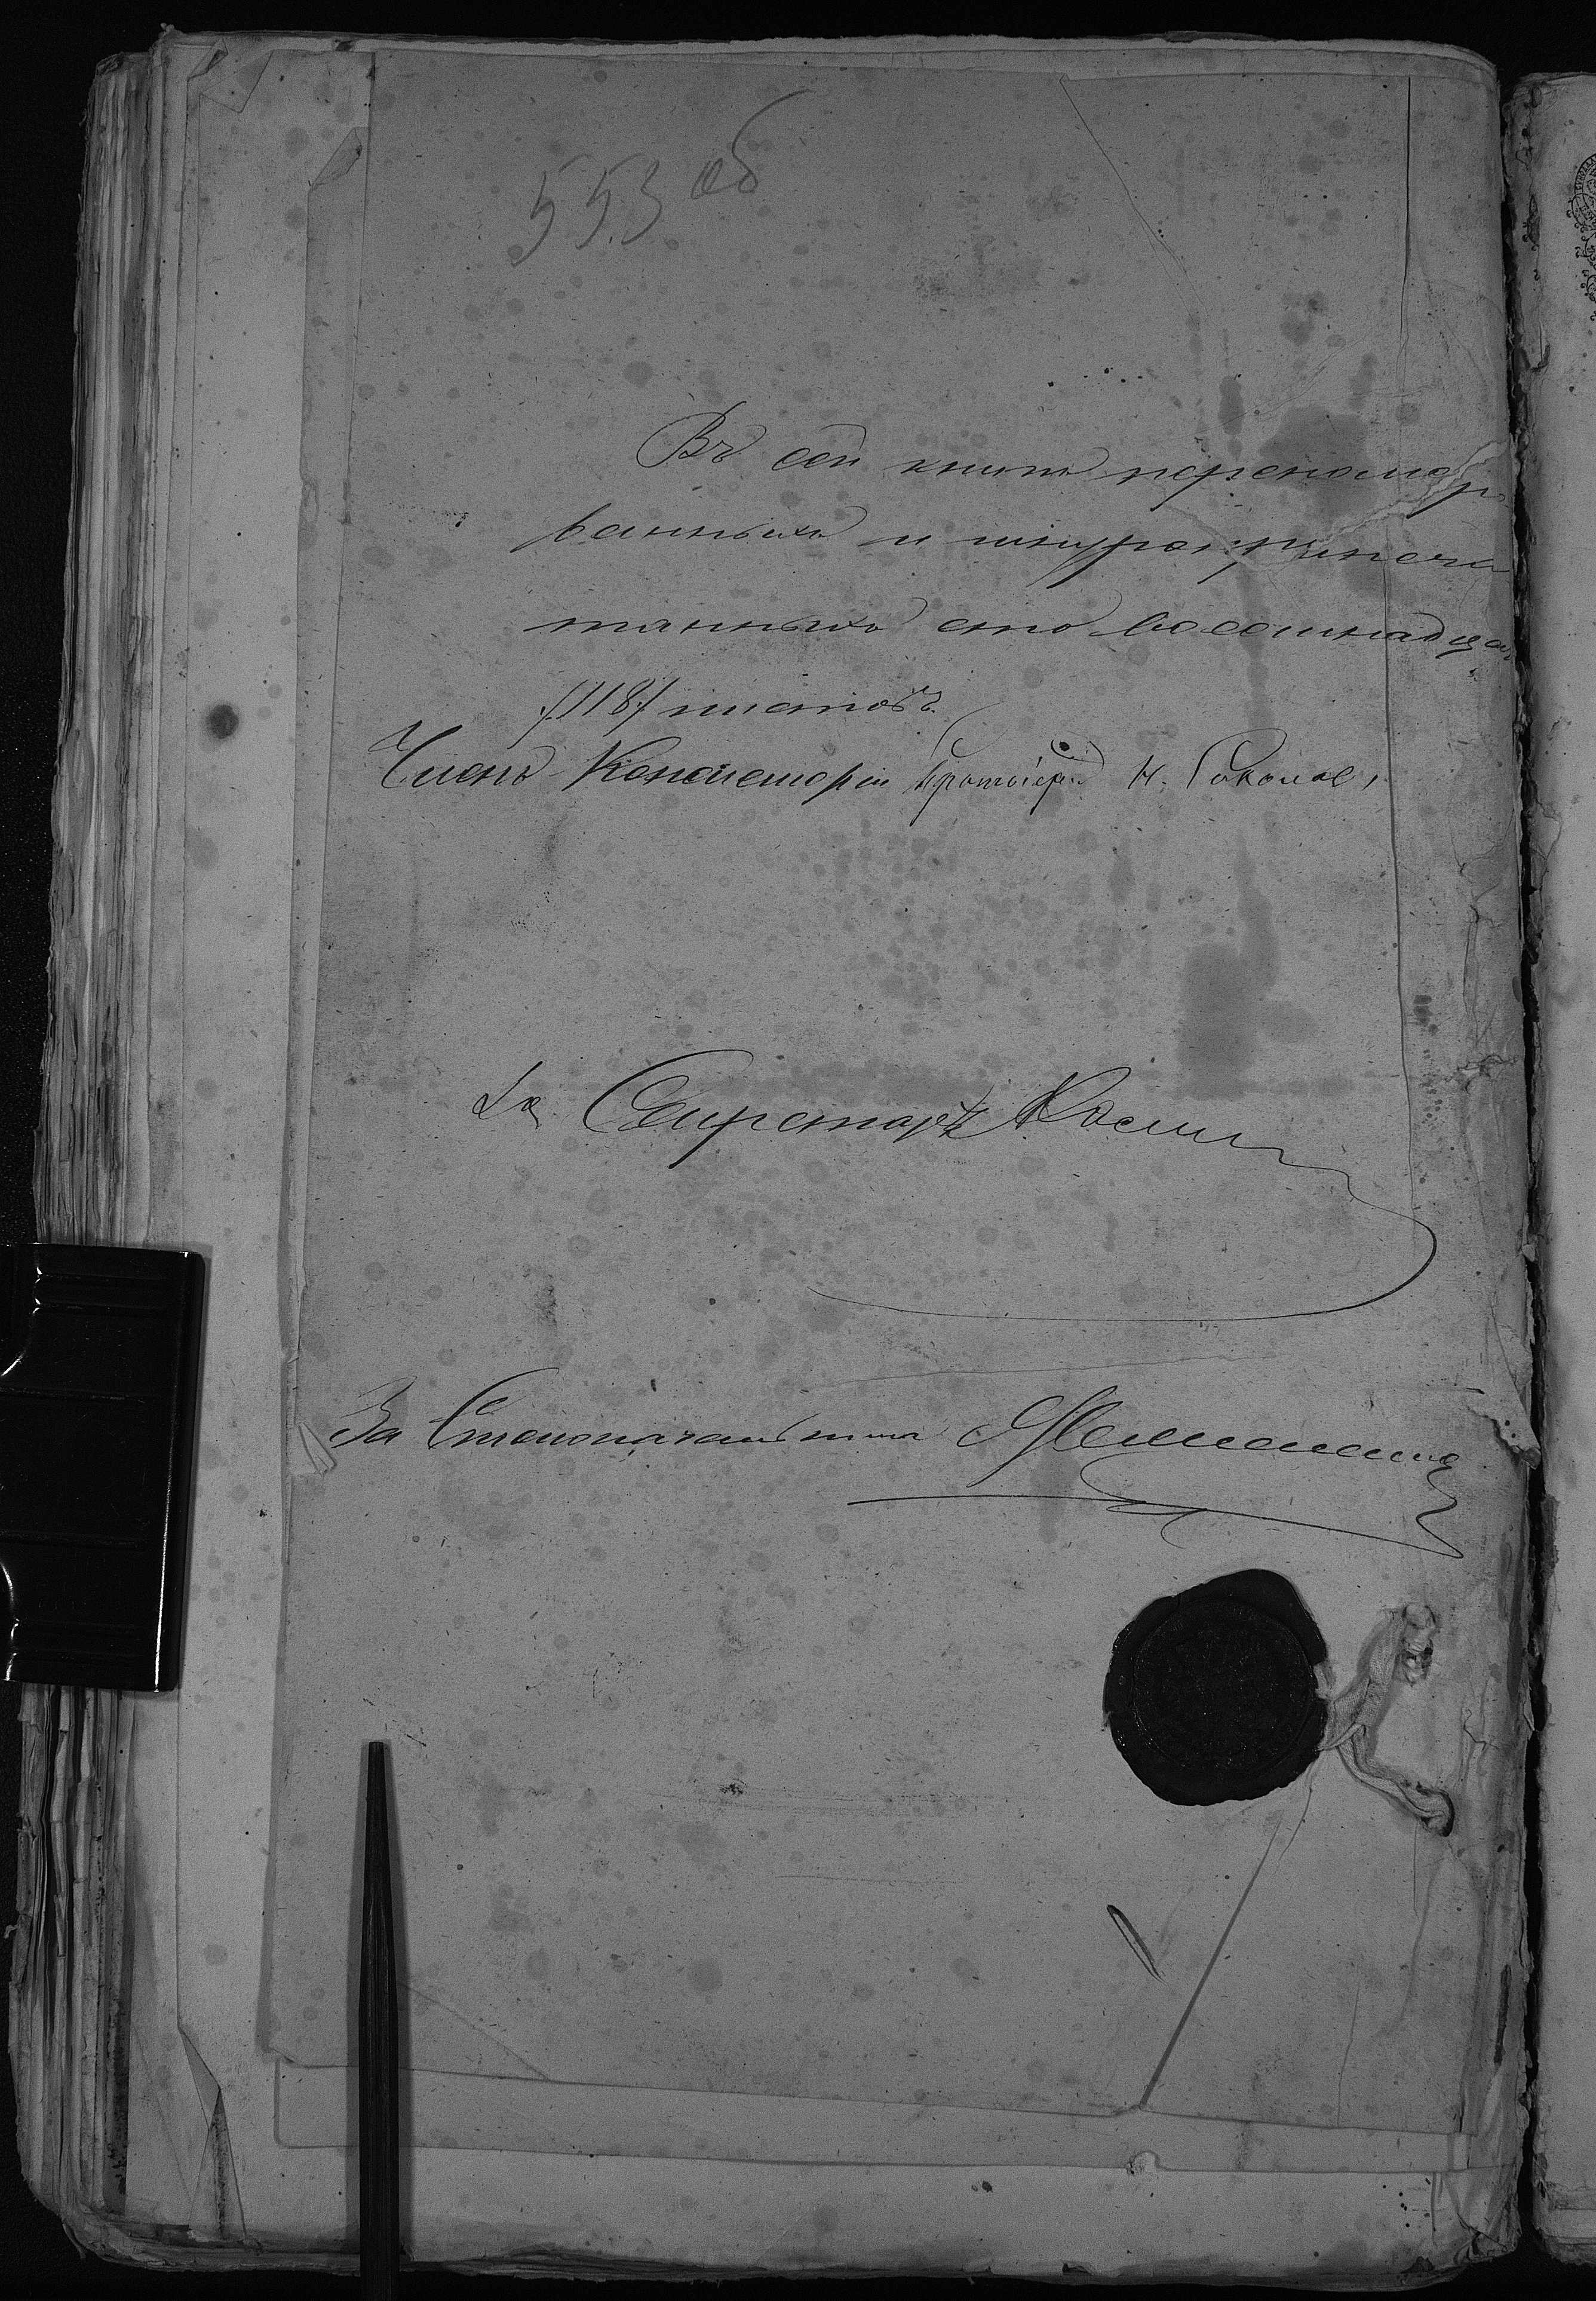 553 об
Въ сей книгѣ перенумеро
ванныхъ и шнуроприпеча
танныхъ сто восемнадцать
/118/ листовъ.
Членъ Консисторіи Протоіерей Н. Соколовъ
За Секретаря
За Столоначальника